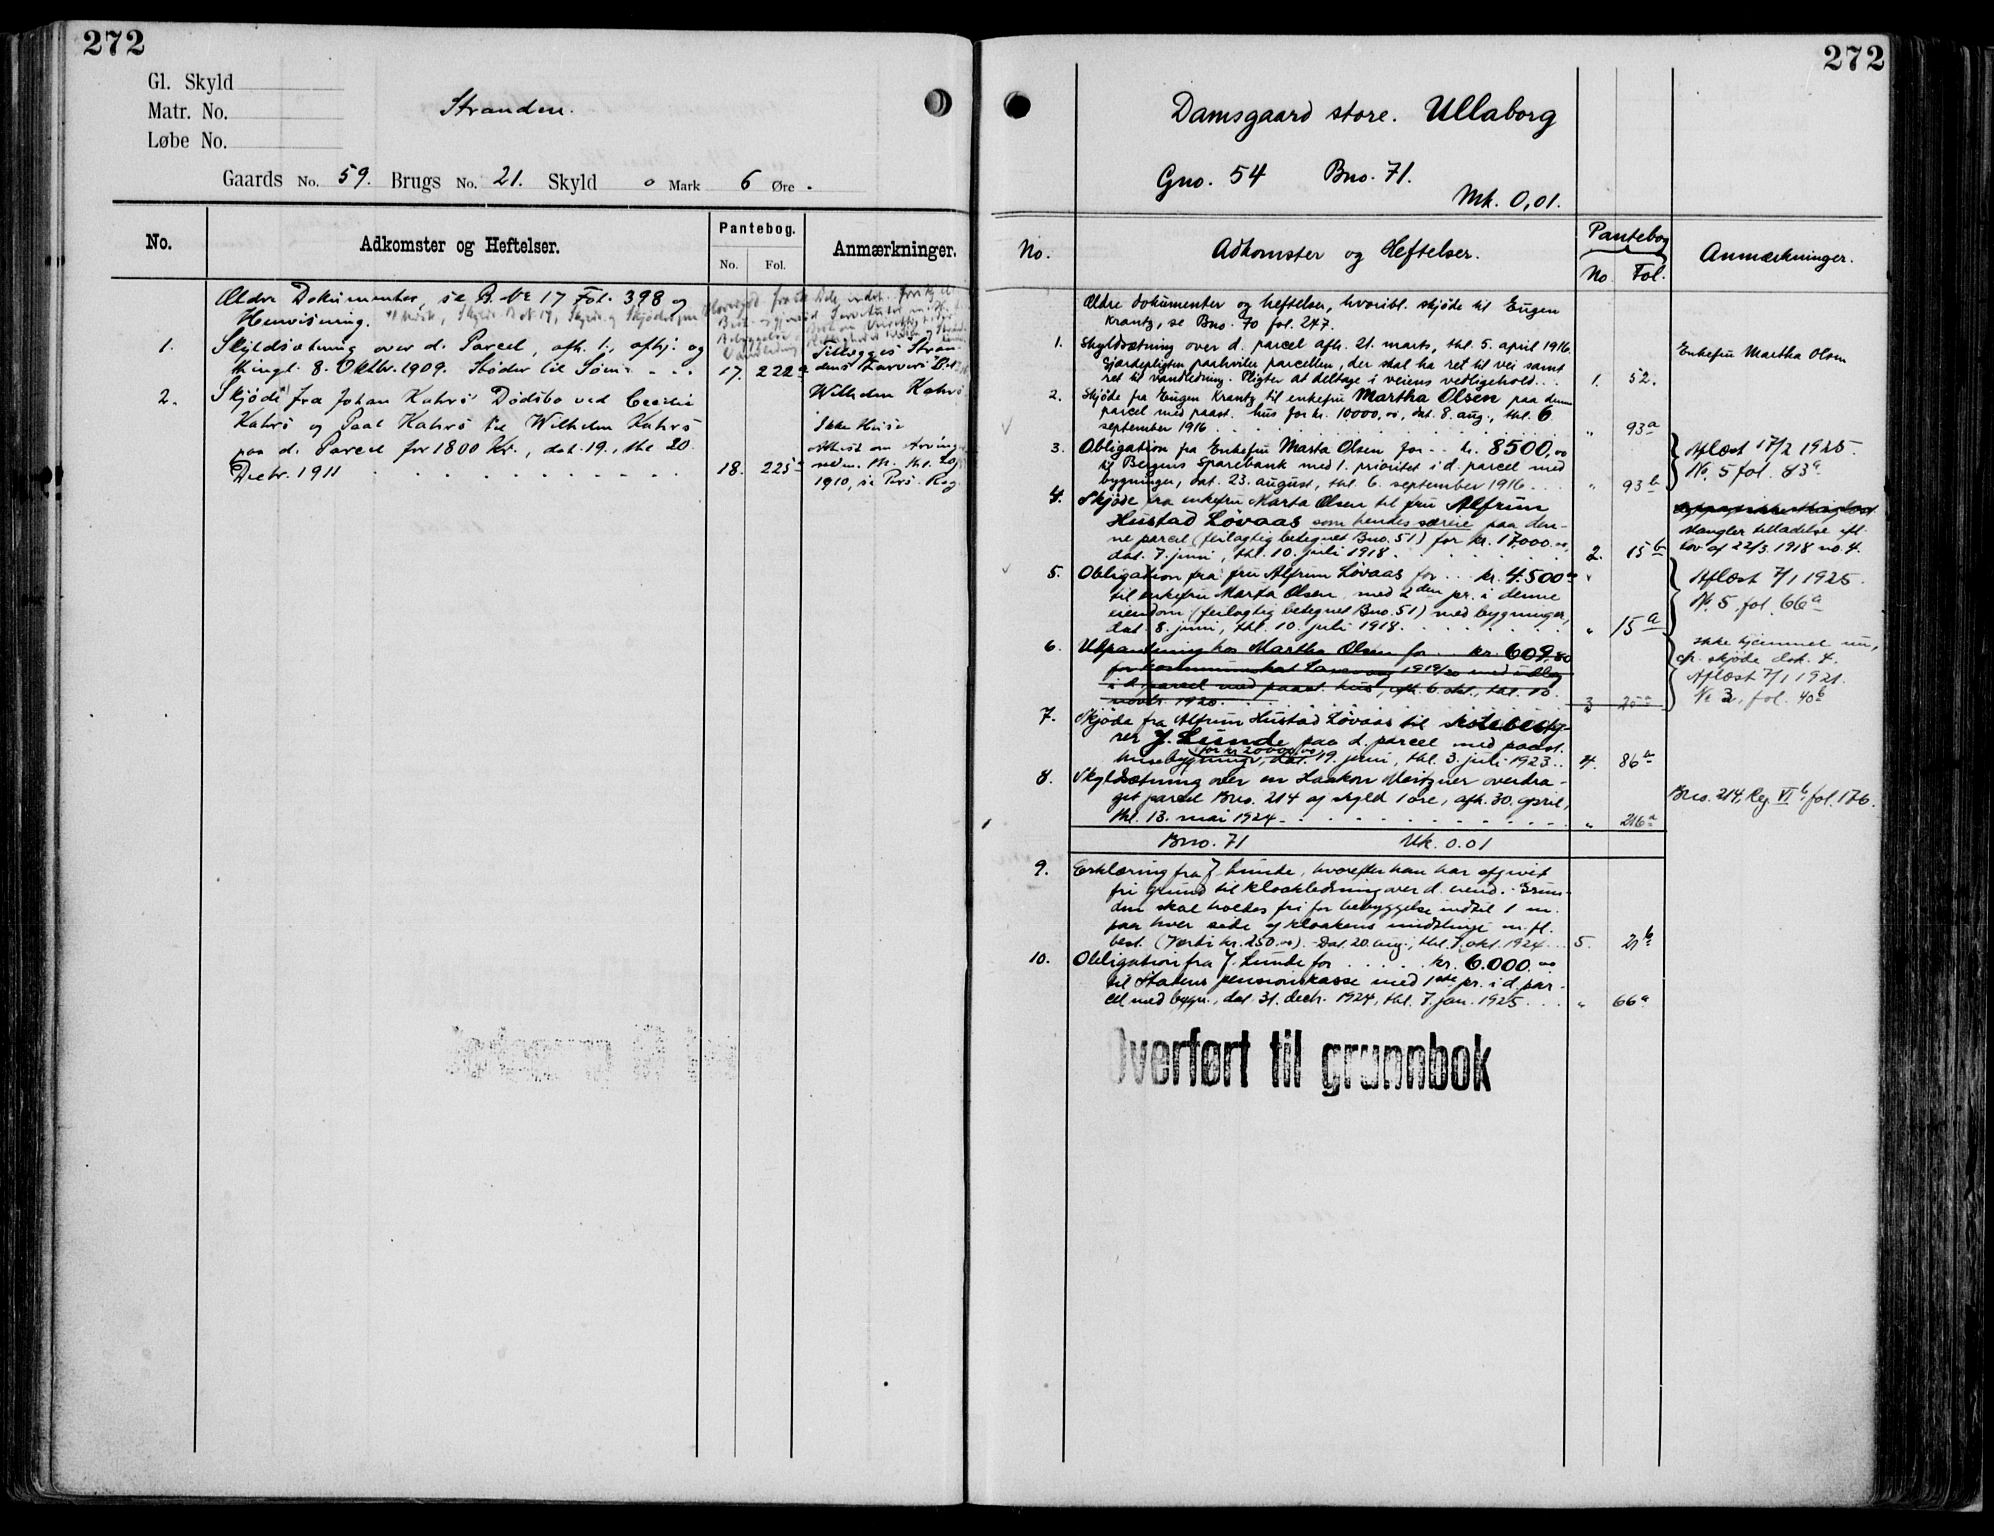 272
Gl. Skyld
Matr. No.
Løbe No.
Stranden.
Gaards No. 59. Brugs No. 21. Skyld o Mark 6 Øre.
No.
Adkomster og Heftelser.
Pantebog.
No. Fol.
Anmærkninger.
Ældre Dokumenter, se B. № 17 Fol. 398 og
Henvisning.
1. Skyldsætning over d. Parcel, afh. 1., afhj. og
thingl. 8. Oktbr. 1909. Støder til Søen - - - 17. 222a
Tillægges Stran-
dens
2. Skjøde fra Johan Kahrs' Dødsbo ved Cecilie
Kahrs og Paal Kahrs til Wilhelm Kahrs
paa d. Parcel for 1800 Kr., dat. 19., thl. 20.
Decbr. 1911 . . . . . . . . . . 18. 225a
Wilhelm Kahrs
Ikke Huse
Attest om
1910, se Pers. Reg.
272
Damsgaard store. Ullaborg
Gno. 54 Bno. 71.
Mk. 0,01.
No.
Adkomster og Heftelser.
Pantebog
No Fol.
Anmærkninger.
Ældre dokumenter og heftelser, hvoribl. skjøde til Eugen
Krantz, se Bno. 70 fol. 247.
1. Skyldsætning over d. parcel afh. 21. marts, thl. 5. april 1916.
Gjærdepligten paahviler parcellen, der skal ha ret til vei samt
ret til vandledning. Pligter at deltage i veiens vedligehold... 1. 52.
Enkefru Martha Olsen
2. Skjøde fra Eugen Krantz til enkefru Martha Olsen paa denne
parcel med paast. hus for kr. 10000,00, dat. 8. aug., thl. 6
september 1916 . . . . . . . . . . " 93a
3. Obligation fra Enkefru Marta Olsen for - - kr. 8500,00
til Bergens Sparebank med 1. prioritet i d. parcel med
bygninger, dat. 23. august, thl. 6. september 1916 . . . " 93b
Aflæst 17/2 1925.
No. 5 fol. 83a.
4. Skjøde fra enkefru Marta Olsen til fru Alfrun
Hustad Løvaas som hendes særeie paa den-
ne parcel (feilagtig betegnet Bno. 51) for kr. 17,000.00,
dat. 7. juni, thl. 10. juli 1918. . . . . . 2. 15b
Mangler tilladelse efl.
lov af 22/3. 1918 no. 4.
5. Obligation fra fru Alfrun Løvaas for ... kr. 4.500 00
til enkefru Marta Olsen med 2den pr. i denne
eiendom (feilagtig betegnet Bno. 51) med bygninger,
dat. 8. juni, thl. 10. juli 1918. . . . . . " 15a
Aflæst 7/1 1925.
№ 5. fol. 66a
6. Utpantning hos Martha Olsen for ... kr. 609,80
for kommuneskat Laxevaag 1919/20 med utlæg
i d. parcel med paast. hus, afh. 6. okt., thl. 10.
novbr. 1920. . . . . . . 3
Ikke hjemmel nu,
cfr. skjøde dok. 4.
Aflæst 7/1 1921.
№ 3, fol. 40b
7. Skjøde fra Alfrun Hustad Løvaas til
rer J. Lunde paa d. parcel med paast.
husebygning (for kr. 20000,00), dat. 19. juni, thl. 3. juli 1923 .. 4. 86b
8. Skyldsætning over en Haakon Meitzner overdra-
get parcel Bno. 214 af skyld 1 øre, afh. 30. april,
thl. 13. mai 1924 - . . . . . . . . " 216a
Bno. 214, Reg. VIb, fol. 176.
Bno. 71 Mk. 0.01
9. Erklæring fra J. Lunde, hvorefter han har afgivet
fri grund til kloakledning over d. eiend. - Grun-
den skal holdes fri for bebyggelse indtil 1 m.
paa hver side af kloakens midtlinje m. fl.
best. (Værdi kr. 250,00). - Dat. 20. aug., thl. 7. okt. 1924 ... 5. 21b
10. Obligation fra J. Lunde for . . . . . kr. 6.000.00
til Statens pensionskasse med 1ste pr. i d. par-
cel med bygn., dat. 31. decbr. 1924, thl. 7. jan. 1925. . . . " 66a
Overført til grunnbok